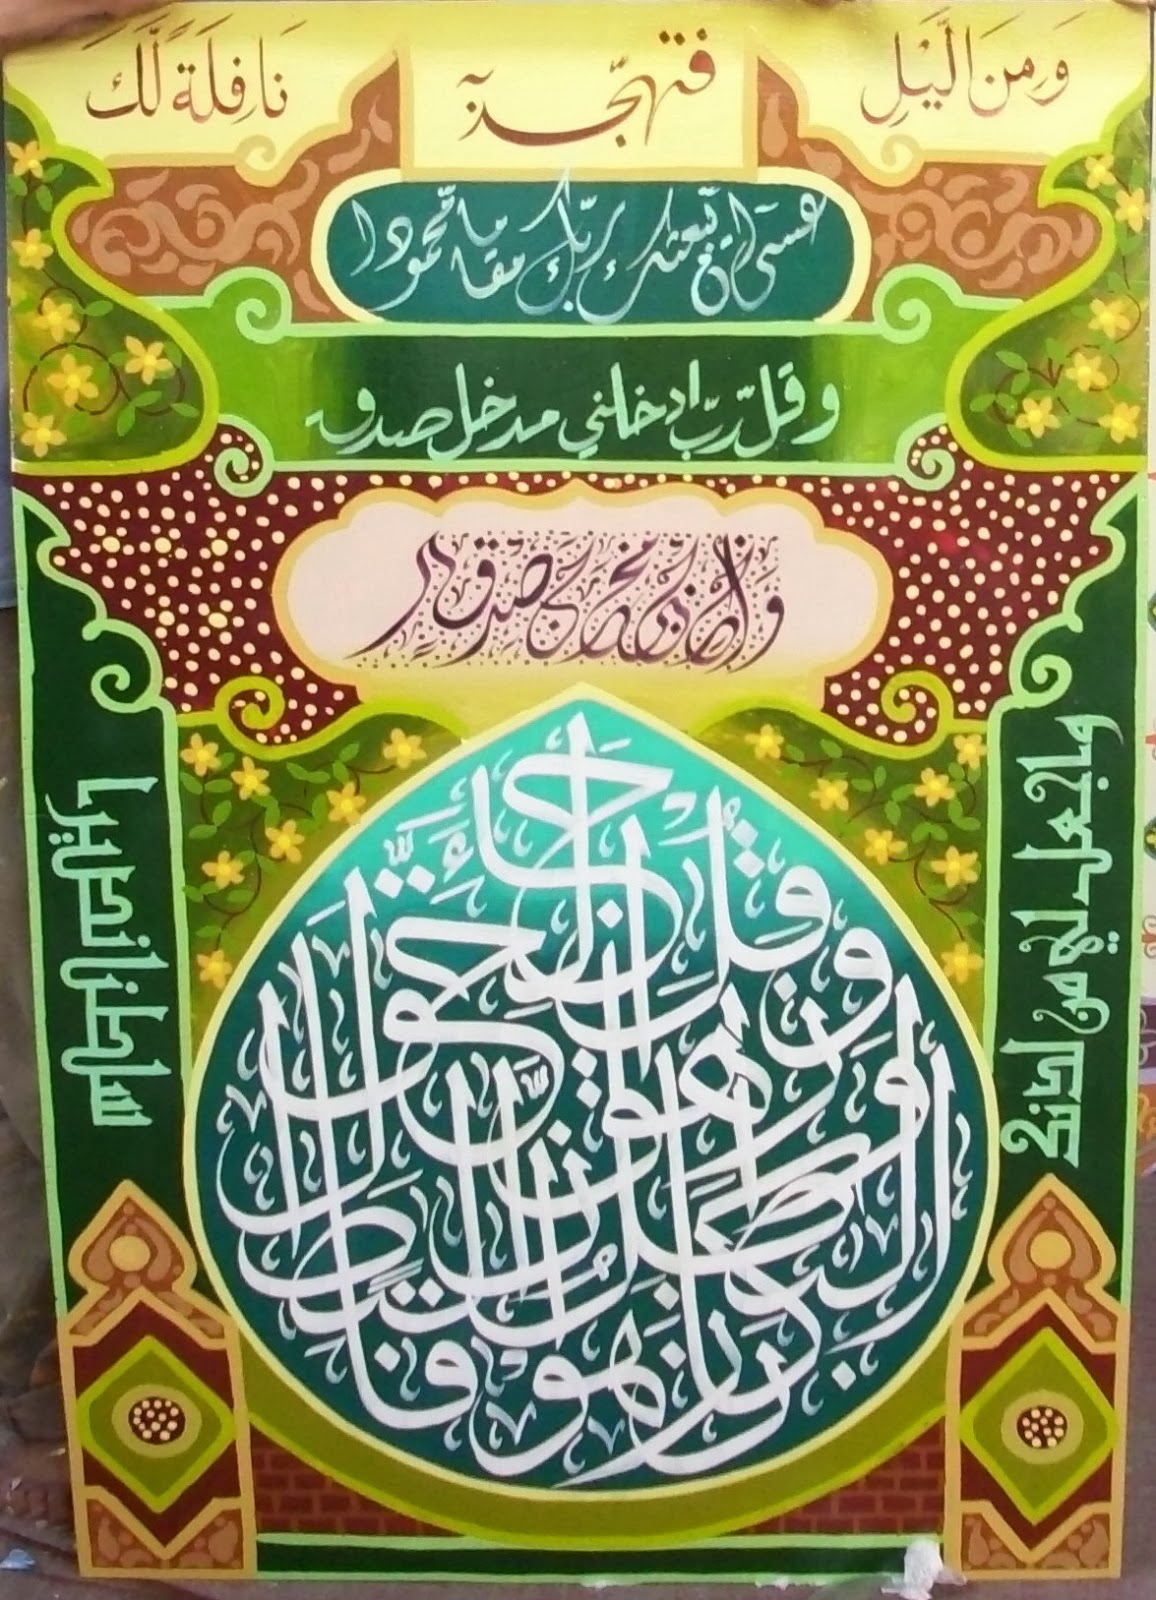 وَمِنَ الَّيْلِ فتهجّد به نَافِلَةً لَّكَ
عسى ان يبعثك ربّك مقاما محمودا
وقل رّب ادخلني مدخل صدق
وأخرجني مخرج صدق
واجعل لي من لدنك
سلطانا نصيرا
وقل جاء الحق وزهق الباطل ان الباطل كان زهوقا